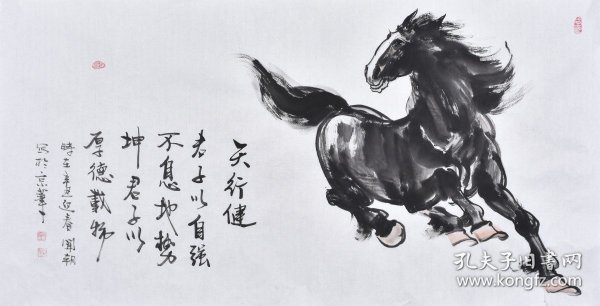 天行健
君子以自强
不息地势
坤君子以
厚德載物
時在辛丑迎春
寫於京華
孔夫子旧书网
www.kongfz.com